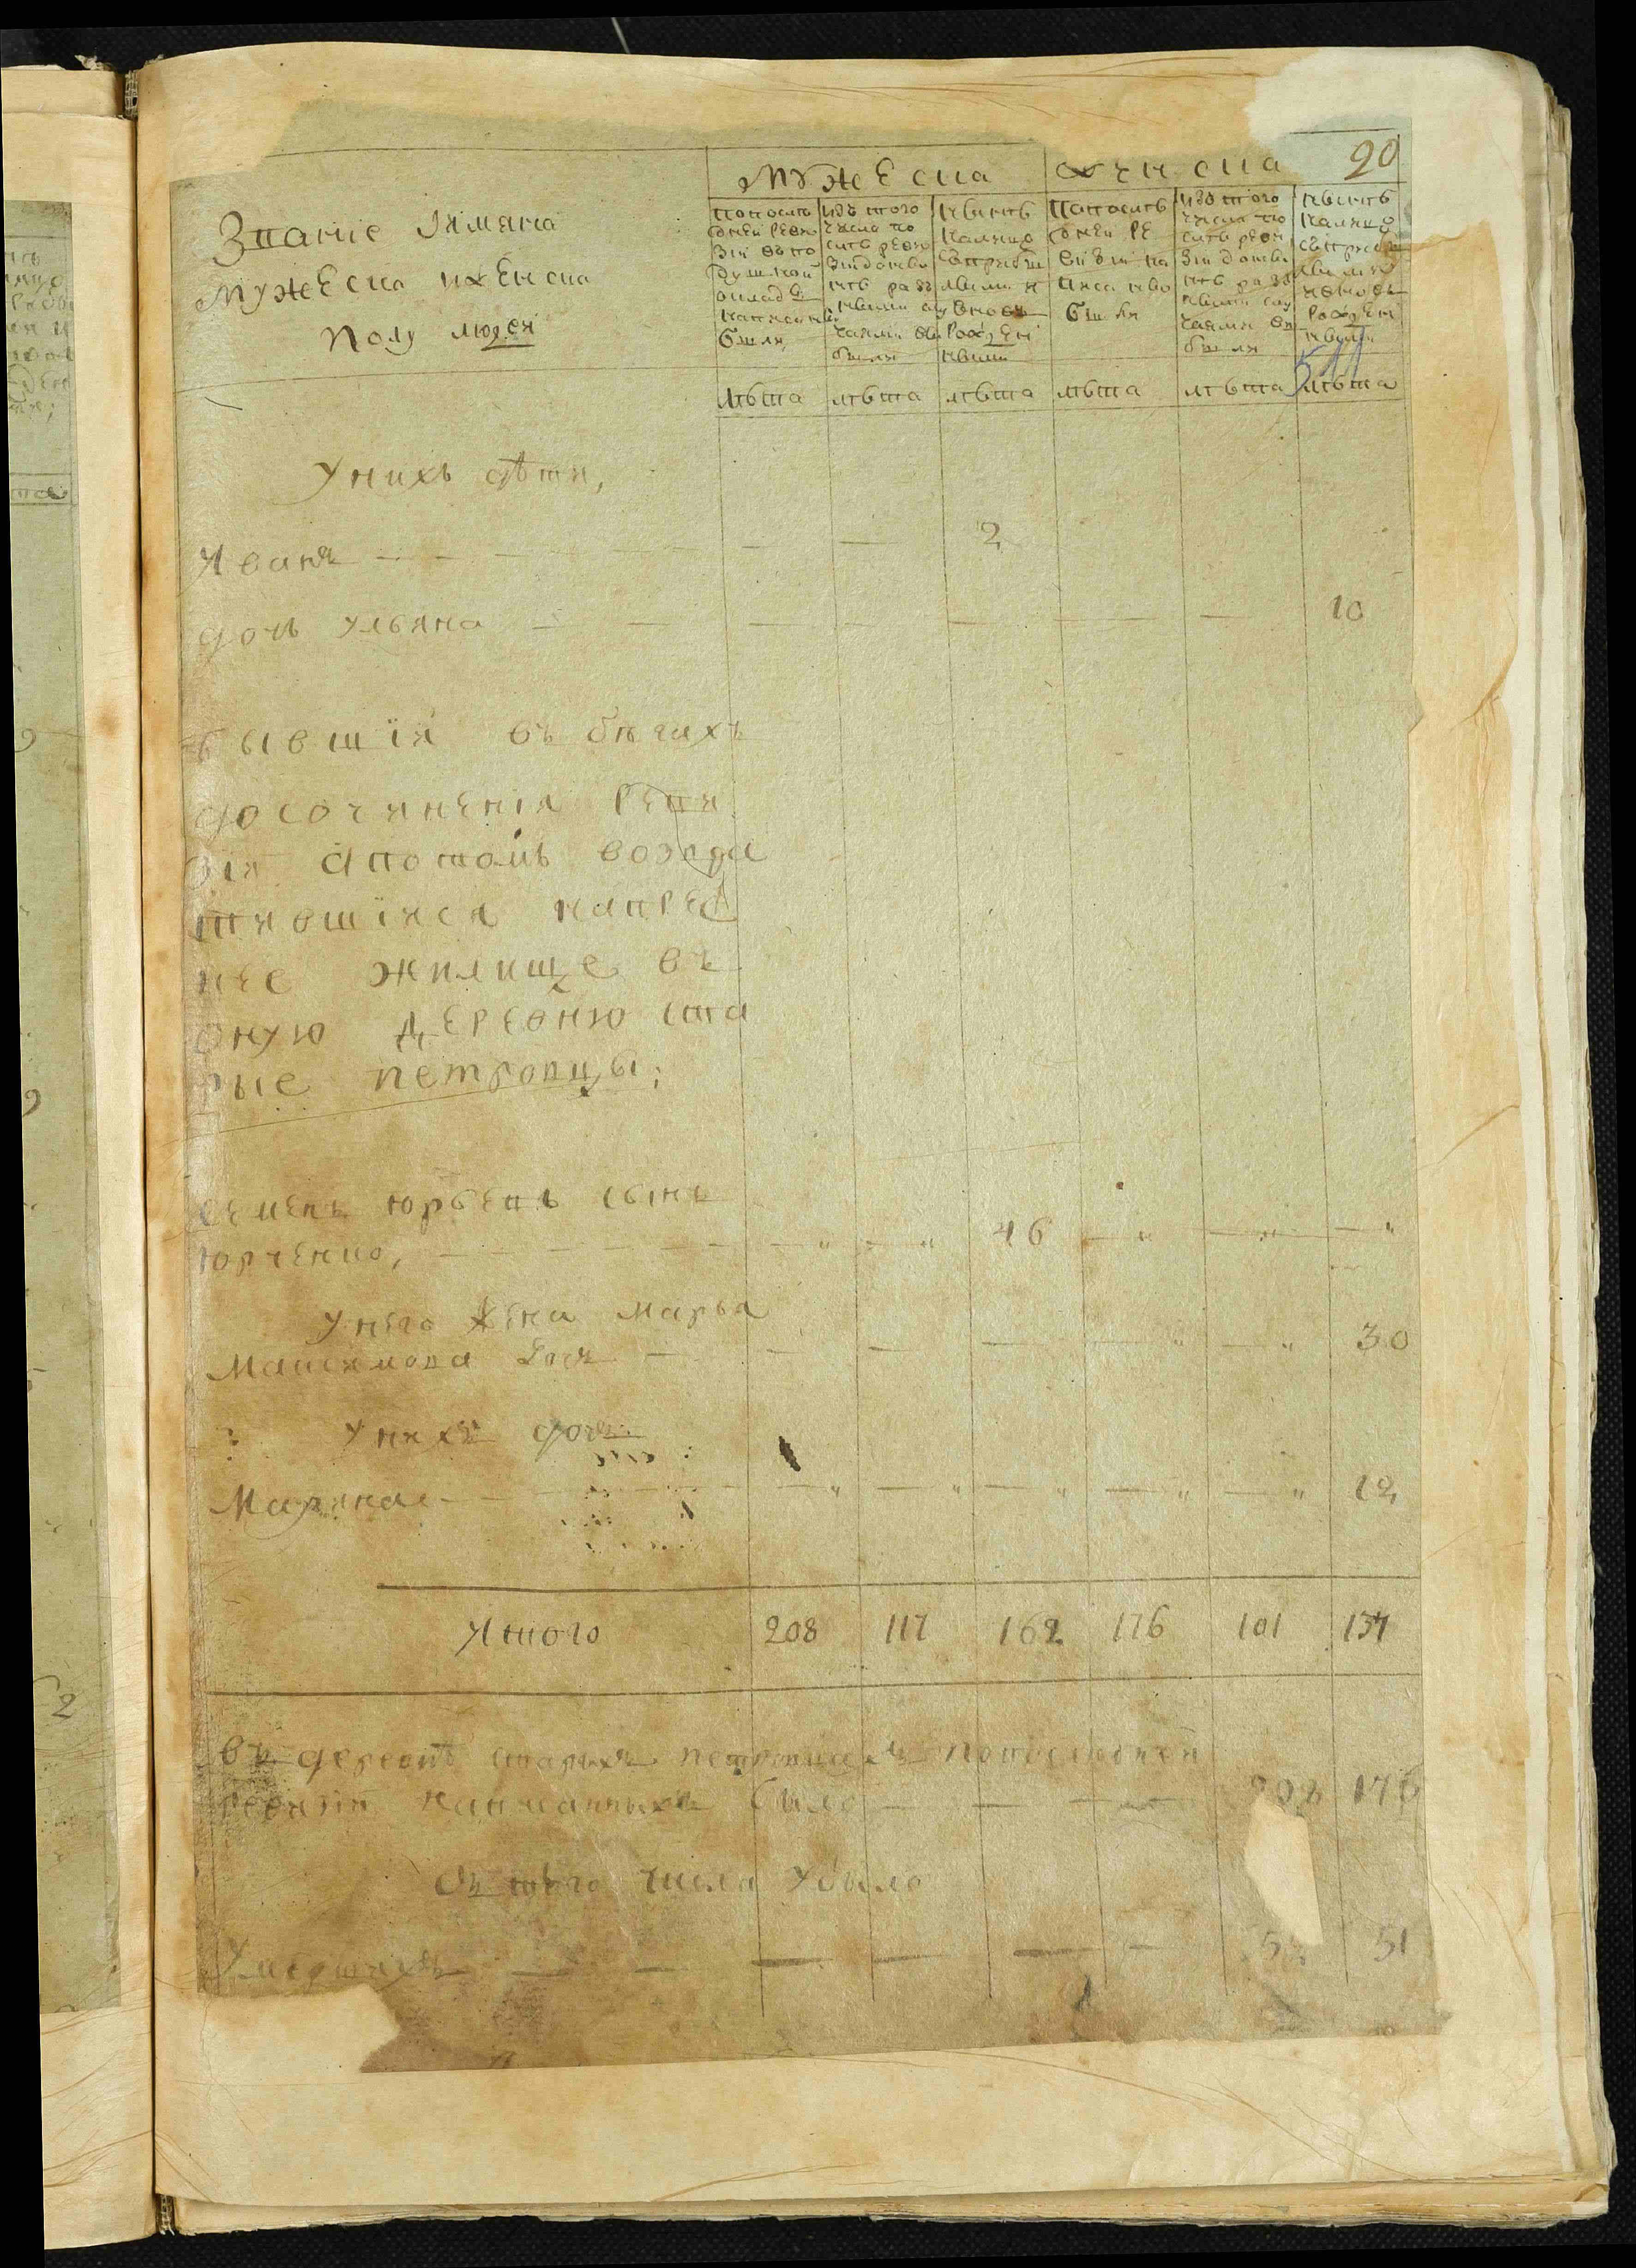 20
Мужеска
женска
Званіе Имяна
Мужеска иженска
полу людей
попослѣ
дней реви
зіи въпо
душной
окладъ
написаны
были
изъ того
числа по
слѣ реви
зіи до ны
нѣ раз
ными слу
чаями вы
было
нынѣ
налицо
съприбы
лыми и
вновь
рожден
ными
Попослѣ
дней ре
изъ того
числа по
слѣ реви
зіи до ны
нѣ раз
ными слу
чаями вы
было
нынѣ
налицо
съприбы
лыми и
вновь
рожден
ными
511
лѣта лѣта лѣта лѣта лѣта лѣта
Унихъ дѣти,
Иванъ 2
дочь Ульяна 10
бывшія въ бѣгахъ
досочиненія реви
зіи апотомъ возвра
тившіися напреж
нее жилище въ
оную деревню ста
рые петровцы;
семенъ юрьевъ сынъ
юрченко, 46
Унего жена Марья
Максимова дочь 30
Унихъ дочь
Марина 12
Итого 208 117 162 176 101 137
Въ деревнѣ старыхъ петровцахъ попослѣдней
ревизіи написанныхъ было 208 176
Изъ того числа убыло
Умершихъ 51